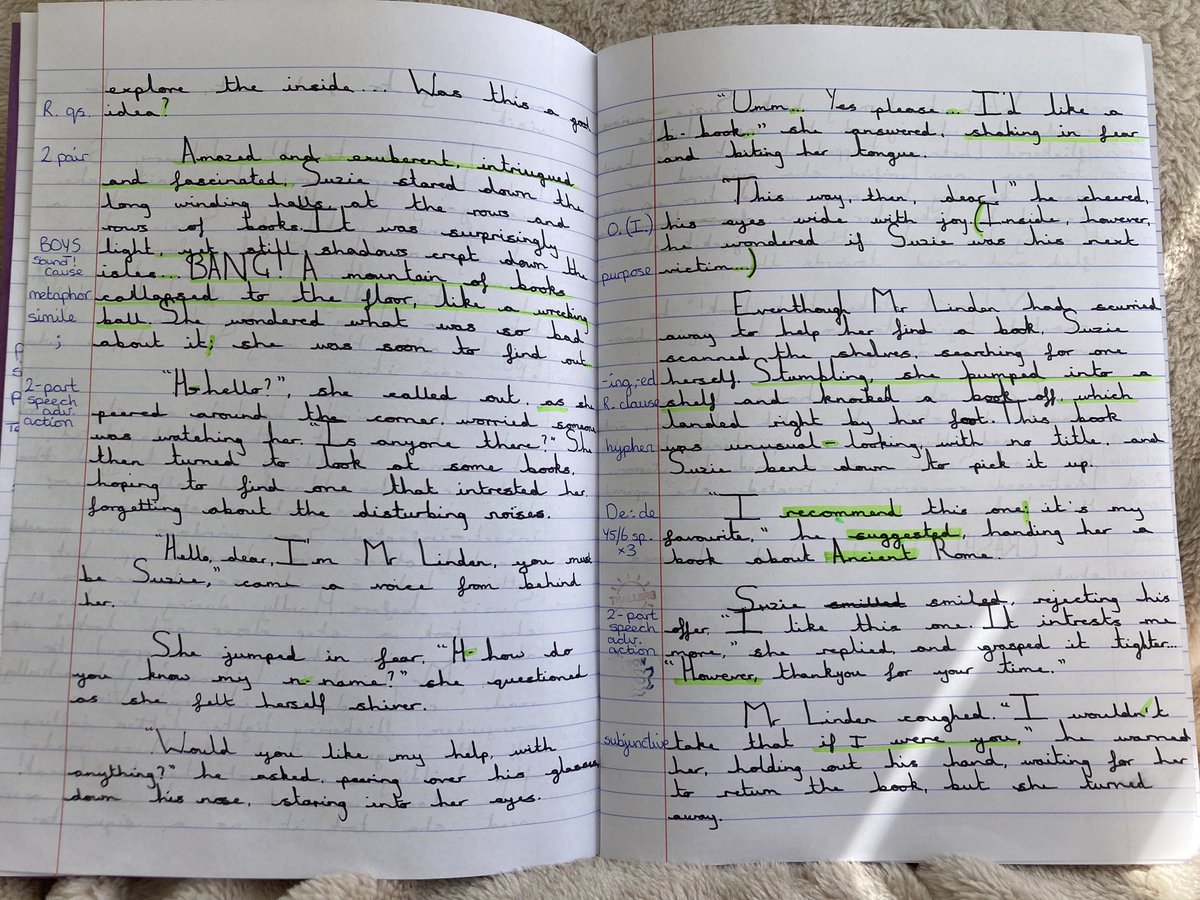 explore the inside... Was this a good
R. qs. idea?
2 pair Amazed and exuberent, intriugued
and fascinated, Suzie stared down the
long winding halls, at the rows and
rows of books. It was surprisingly
BOYS light, yet still shadows crept down the
sound! cause isles... BANG! A mountain of books
metaphor collapsed to the floor, like a wrecking
simile ball. She wondered what was so bad
; about it; she was soon to find out...
2-part speech adv. action "H-hello?", she called out, as she
peered around the corner, worried someone
was watching her. "Is anyone there?" She
then turned to look at some books,
hoping to find one that intrested her,
forgetting about the disturbing noises.
"Hello, dear, I'm Mr Linden, you must
be Suzie," came a voice from behind
her.
She jumped in fear, "H-how do
you know my n-name?" she questioned
as she felt herself shiver.
"Would you like my help, with
anything?" he asked, peering over his glasses,
down his nose, staring into her eyes.
"Umm... Yes please... I'd like a
b-book..." she answered, shaking in fear
and biting her tongue.
"This way, then, dear!" he cheered,
O. (I.) his eyes wide with joy (Inside, however,
he wondered if Suzie was his next
purpose victim...)
Eventhough Mr Linden had scurried
away to help her find a book, Suzie
scanned the shelves, searching for one
-ing,-ed herself. Stumbling, she bumped into a
R. clause shelf and knocked a book off, which
landed right by her foot. This book
hyphen was unusual-looking, with no title, and
Suzie bent down to pick it up.
"I recommend this one; it's my
De:de Y5/6 sp. x3 favourite," he suggested, handing her a
book about Ancient Rome.
BRILLIANT
Suzie smilled smiled, rejecting his
2-part speech adv. action offer, "I like this one. It intrests me
more," she replied, and grasped it tighter...
"However, thankyou for your time."
Mr Linden coughed. "I wouldn't
subjunctive take that if I were you," he warned
her, holding out his hand, waiting for her
to return the book, but she turned
away.